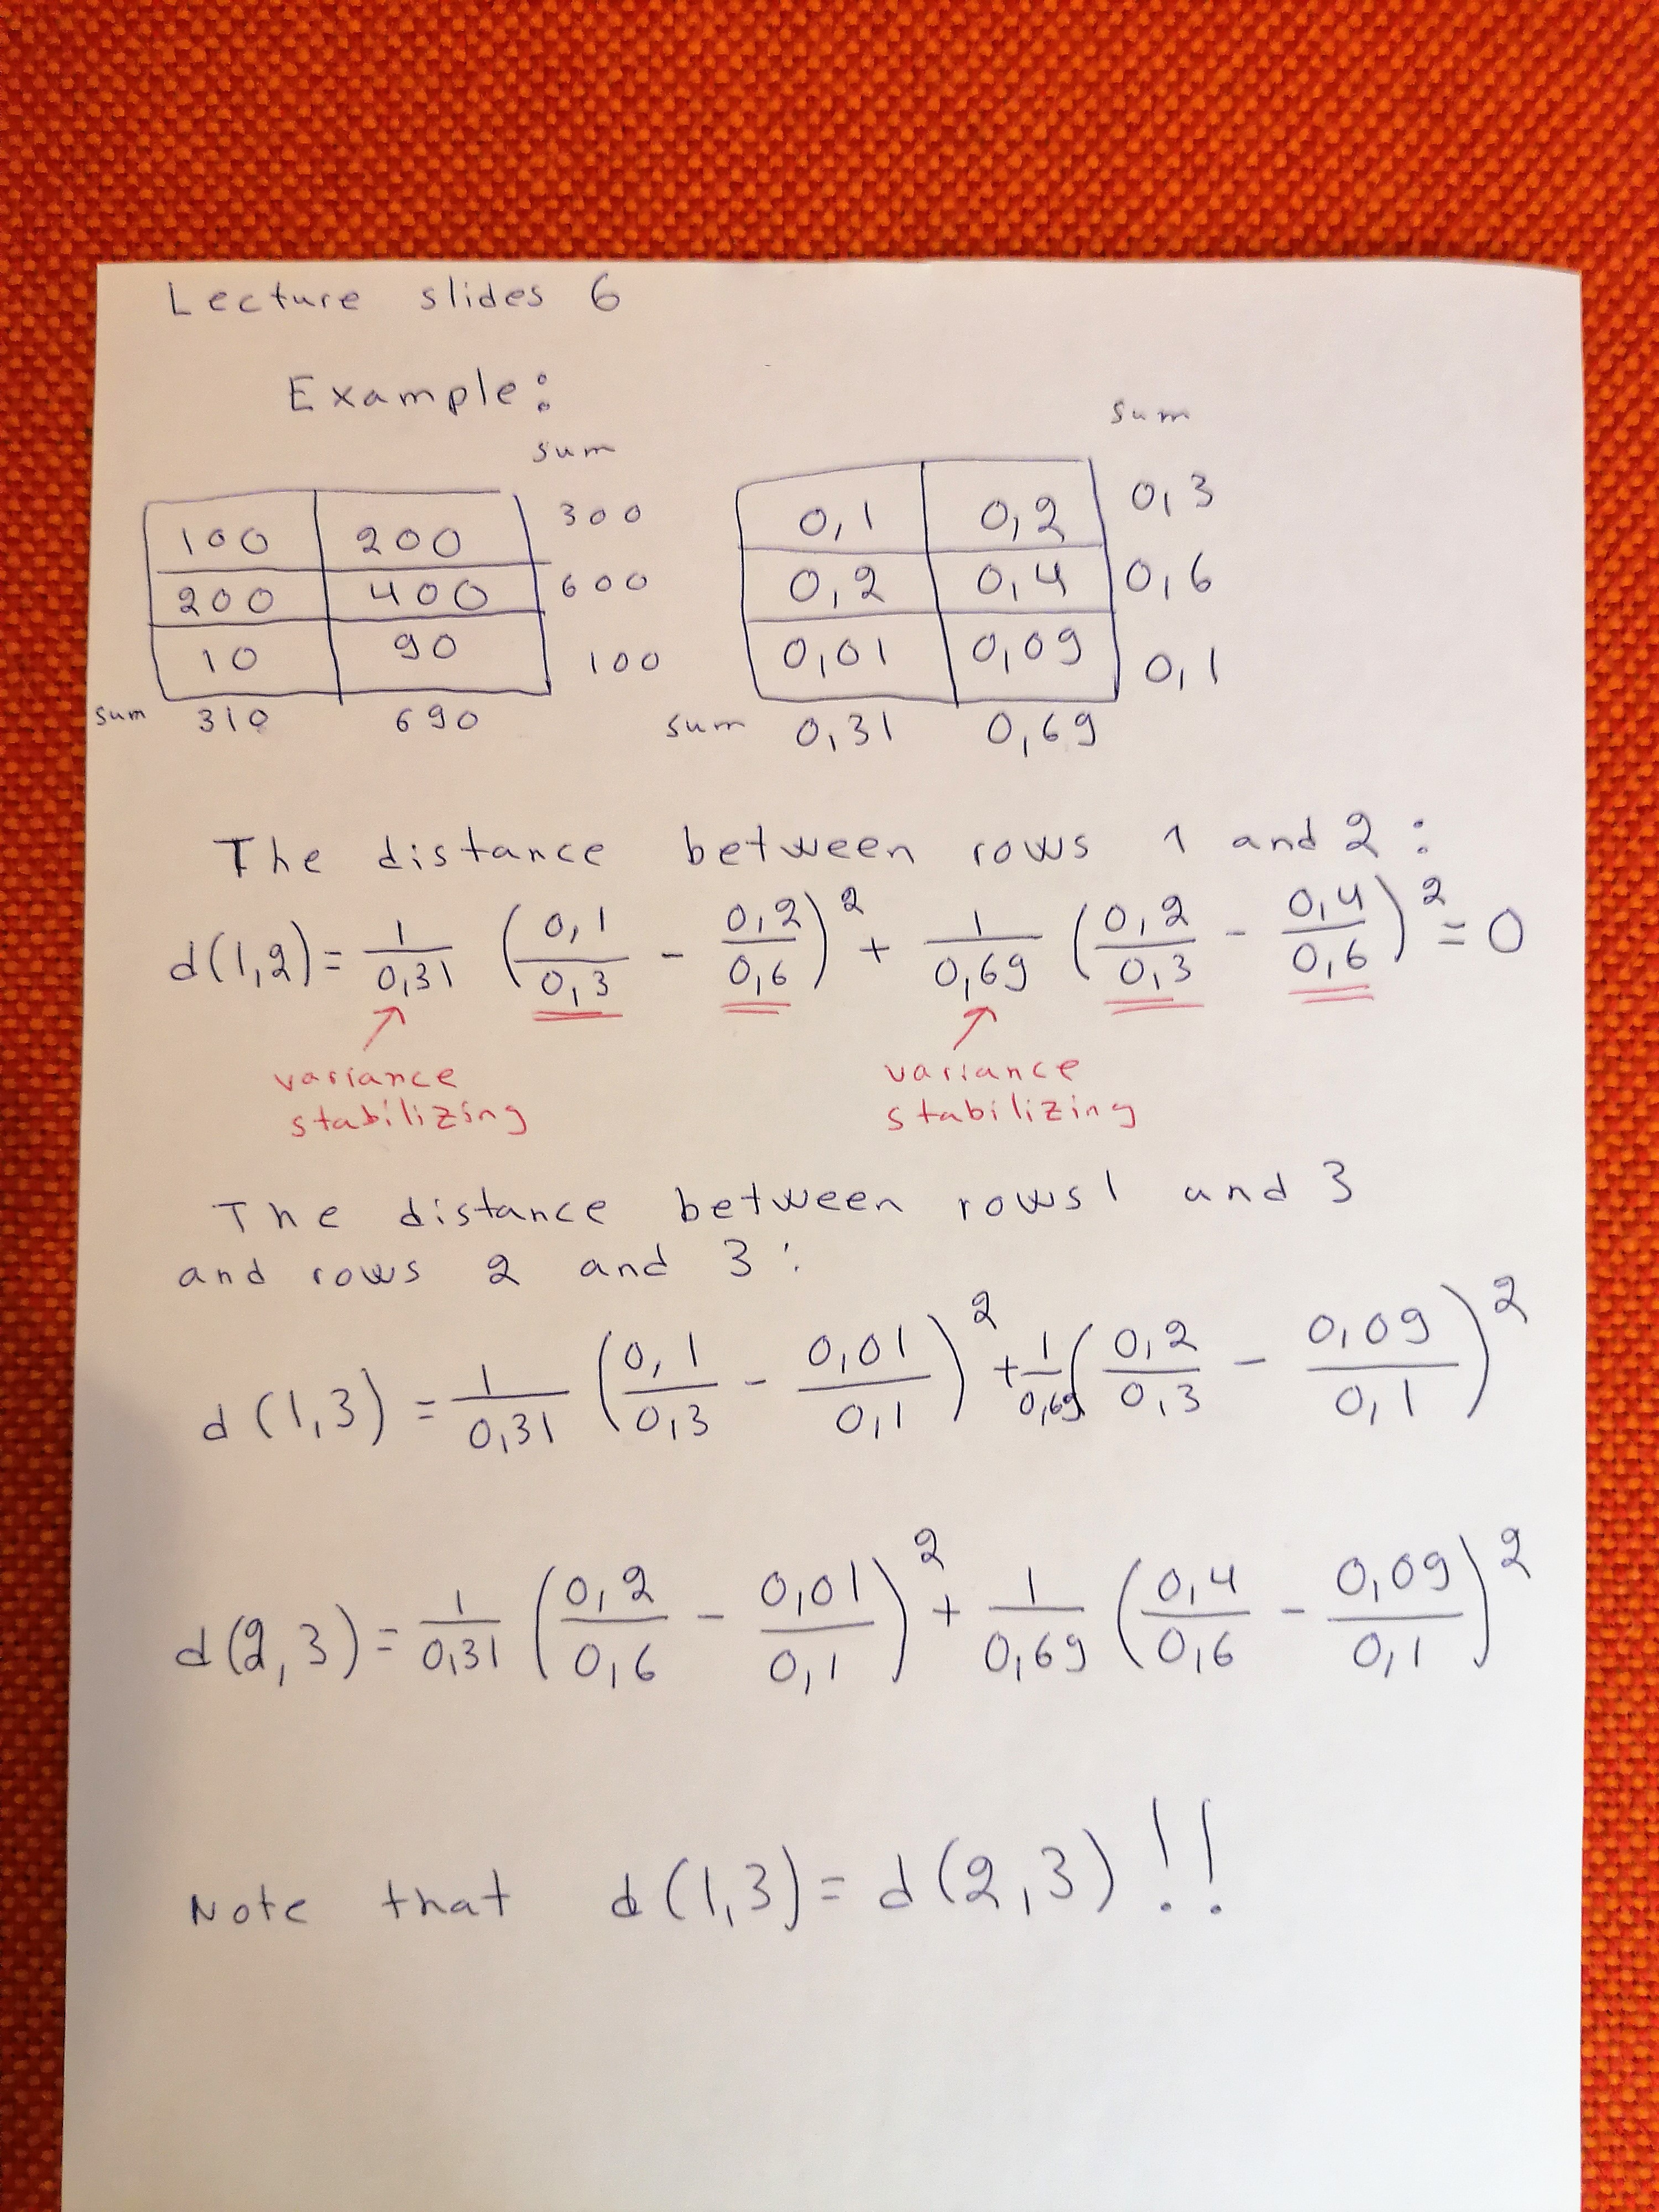 Lecture slides 6
Example:
sum
100 200 300
200 400 600
10 90 100
sum 310 690
sum
0,1 0,2 0,3
0,2 0,4 0,6
0,01 0,09 0,1
sum 0,31 0,69
The distance between rows 1 and 2:
d(1,2) = 1/0,31 (0,1/0,3 - 0,2/0,6)² + 1/0,69 (0,2/0,3 - 0,4/0,6)² = 0
variance stabilizing
variance stabilizing
The distance between rows 1 and 3
and rows 2 and 3:
d(1,3) = 1/0,31 (0,1/0,3 - 0,01/0,1)² + 1/0,69 (0,2/0,3 - 0,09/0,1)²
d(2,3) = 1/0,31 (0,2/0,6 - 0,01/0,1)² + 1/0,69 (0,4/0,6 - 0,09/0,1)²
Note that d(1,3) = d(2,3)!!